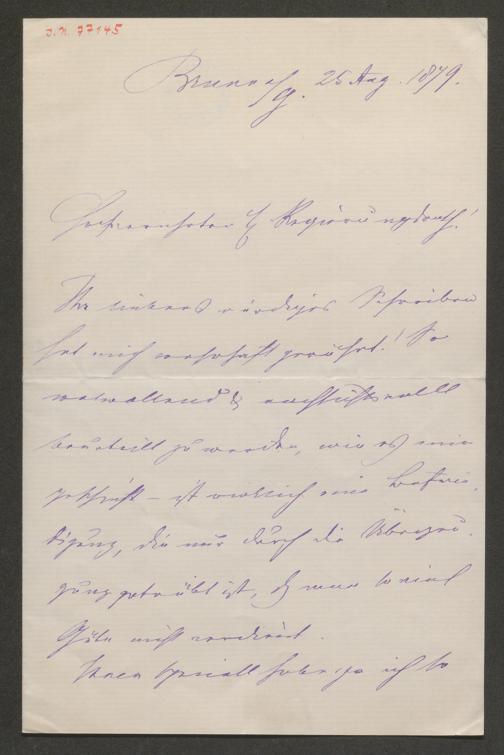 J.N. 77145
25 Aug. 1879.
Hochverehrter H Regierungsrath!
Ihr liebenswürdiges Schreiben
hat mich wahrhaft gerührt! So
wolwollend & nachsichtsvoll
beurteilt zu werden, wie es mir
geschieht – ist wirklich eine Befrie-
digung, die nur durch die Überzeu-
gung getrübt ist, dß man so viel
Güte nicht verdient.
Ihnen speciell habe ja ich so